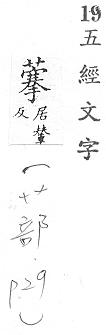 19 五經文字
居輦
反
(艹部. p29)